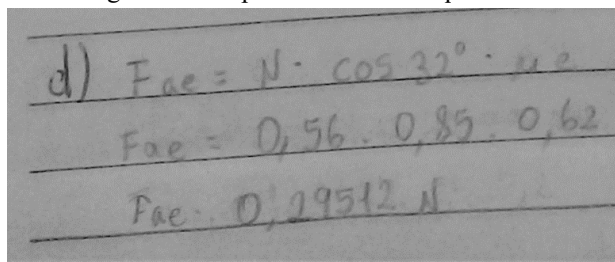 d) Fae = N · cos 32° · μe
Fae = 0,56 . 0,85 . 0,62
Fae = 0,29512 N